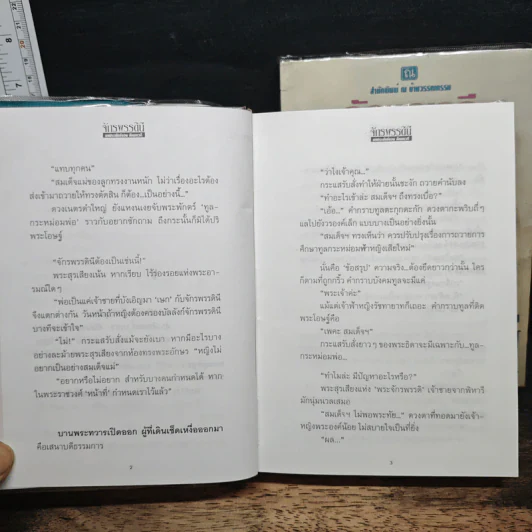 จักรพรรดินี
"แทบทุกคน"
"สมเด็จแม่ของลูกทรงงานหนัก ไม่ว่าเรื่องอะไรต้อง
ส่งเข้ามาถวายให้ทรงตัดสิน ก็ต้อง...เป็นอย่างนี้..."
ดวงเนตรดำใหญ่ ยังแหงนเงยจับพระพักตร์ 'ทูล-
กระหม่อมพ่อ' ราวกับอยากซักถาม ถึงกระนั้นก็มิได้ปริ
พระโอษฐ์
"จักรพรรดินีต้องเป็นเช่นนี้!"
พระสุรเสียงเน้น หากเรียบ ไร้ร่องรอยแห่งพระอา-
รมณ์ใดๆ
"พ่อเป็นแค่เจ้าชายที่บังเอิญมา 'เษก' กับจักรพรรดินี
จึงแตกต่างกัน วันหน้าถ้าหญิงต้องครองบัลลังก์จักรพรรดินี
บางทีจะเข้าใจ"
"ไม่!" กระแสรับสั่งแม้จะยังเบา หากมีอะไรบาง
อย่างละม้ายพระสุรเสียงจากห้องทรงพระอักษร "หญิงไม่
อยากเป็นอย่างสมเด็จแม่"
"อยากหรือไม่อยาก สำหรับบางคนกำหนดได้ หาก
ในพระราชวงศ์ 'หน้าที่' กำหนดเราไว้แล้ว"
บานพระทวารเปิดออก ผู้ที่เดินเช็ดเหงื่อออกมา
คือเสนาบดีธรรมการ
2
สำนักพิมพ์ ณ บ้านวรรณกรรม
จักรพรรดินี
"ว่าไงเจ้าคุณ..."
กระแสรับสั่งทำให้ฝ่ายนั้นชะงัก ถวายคำนับลง
"ทำอะไรเข้าล่ะ สมเด็จฯ ถึงทรงเบื่อ?"
"เอ้อ..." คำกราบทูลตะกุกตะกัก ดวงตากะพริบถี่ๆ
แลไปยังวรองค์เล็ก แบบบางเป็นอย่างยิ่งนั้น
"สมเด็จฯ ทรงเห็นว่า ควรปรับปรุงเรื่องการถวายการ
ศึกษาทูลกระหม่อมฟ้าหญิงเสียใหม่"
นั่นคือ 'ข้อสรุป' ความจริง...ต้องยืดยาวกว่านั้น ใคร
ก็ตามที่ถูกกริ้ว คำกราบบังคมทูลจะมีแค่
"พระเจ้าค่ะ"
แม้แต่เจ้าฟ้าหญิงรัชทายาทก็เถอะ คำกราบทูลที่ติด
พระโอษฐ์คือ
"เพคะ สมเด็จฯ"
กระแสรับสั่งยาวๆ ของพระธิดาจะมีเฉพาะกับ...ทูล-
กระหม่อมพ่อ...
"ทำไมล่ะ มีปัญหาอะไรหรือ?"
พระสุรเสียงแห่ง 'พระจักรพรรดิ' เจ้าชายจากพิหารี
มักนุ่มนวลเสมอ
"สมเด็จฯ ไม่พอพระทัย..." ดวงตาที่ทอดมายังเจ้า-
หญิงพระองค์น้อย ไม่สบายใจเป็นที่ยิ่ง
"ผล..."
3